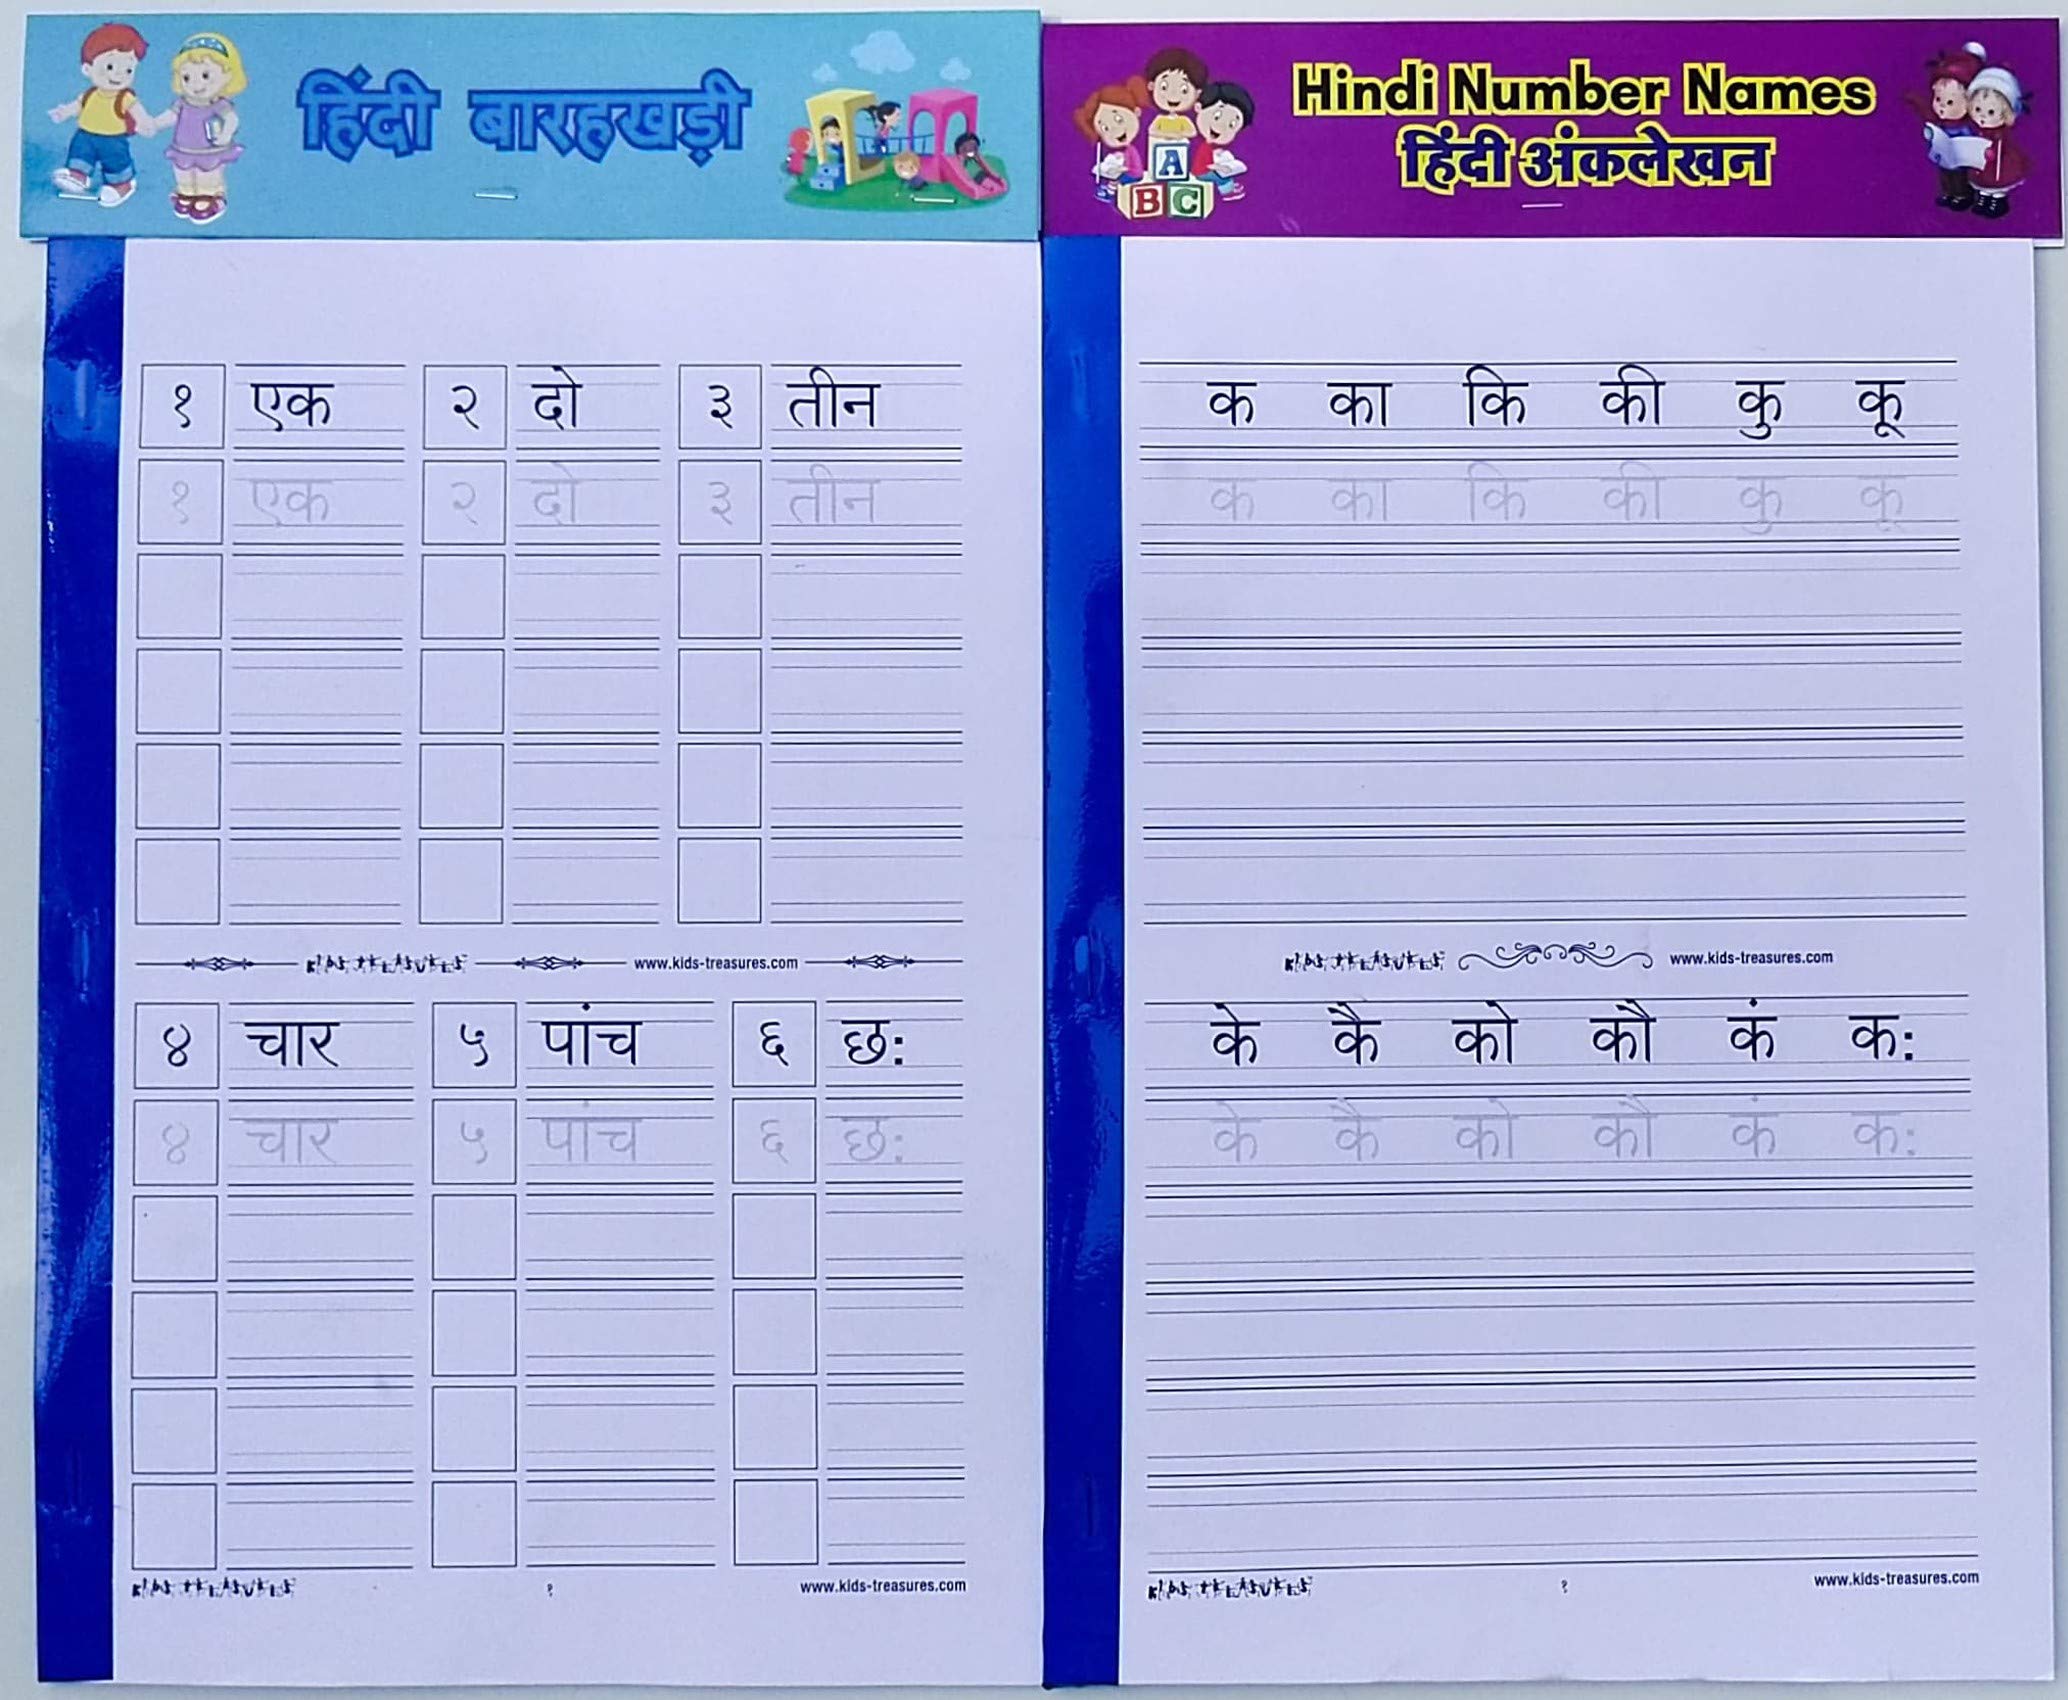 हिंदी बारहखड़ी
१ एक २ दो ३ तीन
१ एक २ दो ३ तीन
KIDS TREASURES www.kids-treasures.com
४ चार ५ पांच ६ छः
४ चार ५ पांच ६ छः
KIDS TREASURES १ www.kids-treasures.com
Hindi Number Names
हिंदी अंकलेखन
A
B C
क का कि की कु कू
क का कि की कु कू
KIDS TREASURES www.kids-treasures.com
के कै को कौ कं कः
के कै को कौ कं कः
KIDS TREASURES १ www.kids-treasures.com